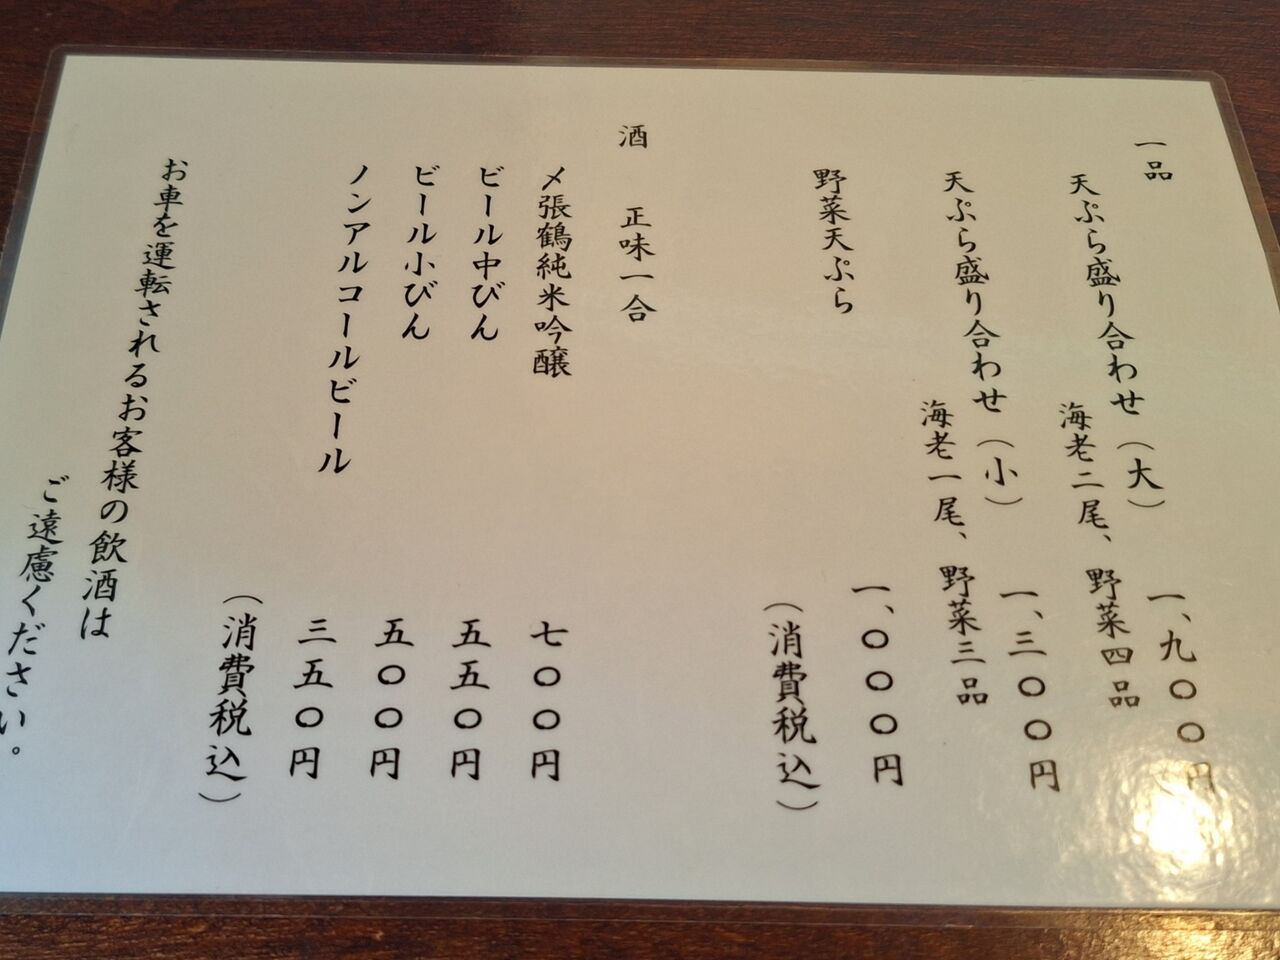 一品
天ぷら盛り合わせ（大）　一、九〇〇円
海老二尾、野菜四品
天ぷら盛り合わせ（小）　一、三〇〇円
海老一尾、野菜三品
野菜天ぷら　一、〇〇〇円
（消費税込）
酒　正味一合
〆張鶴純米吟醸　七〇〇円
ビール中びん　五五〇円
ビール小びん　五〇〇円
ノンアルコールビール　三五〇円
（消費税込）
お車を運転されるお客様の飲酒は
ご遠慮ください。